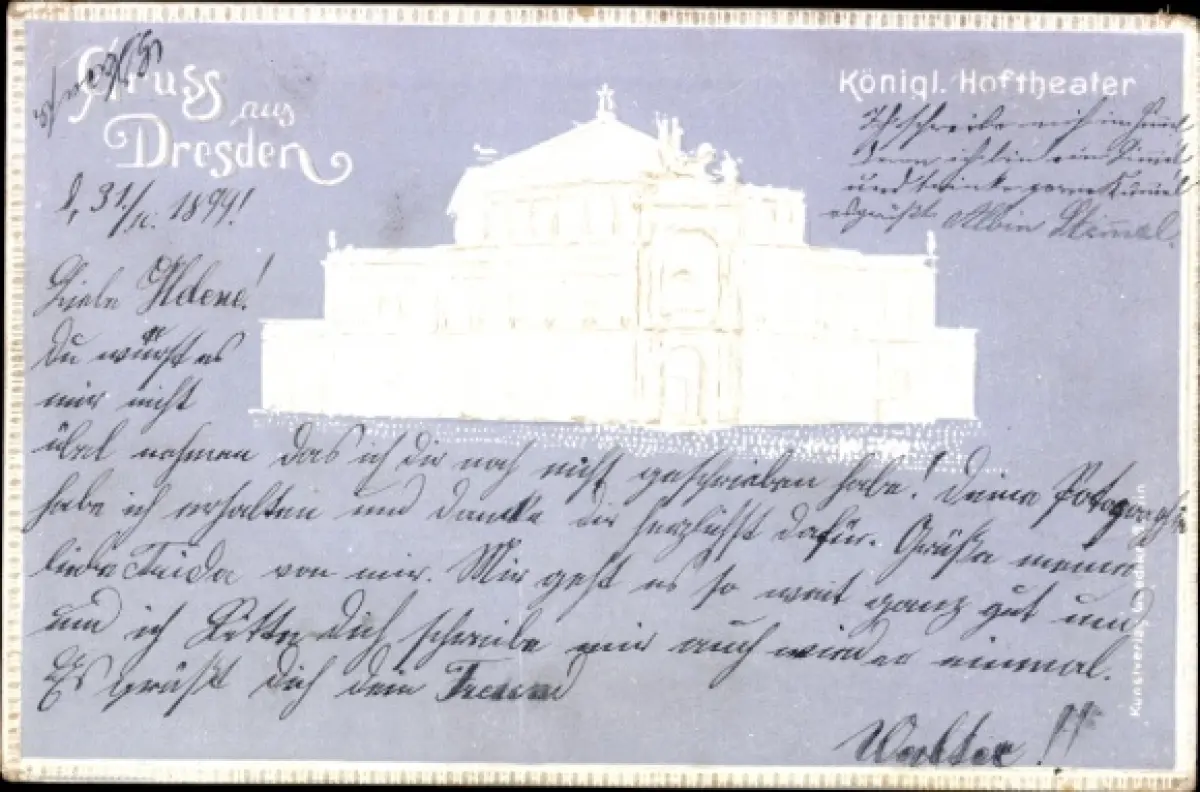 Gruss
aus
Dresden
Königl. Hoftheater
Ich schreibe mich im
denn ich bin ein
und trinke gerne Kümmel
es grüßt Albin
d, 31/ 1899!
Liebe Helene!
Du würst es
mir nicht
übel nehmen das ich dir noch nicht geschrieben habe! deine Fotographie
habe ich erhalten und danke dir herzlichst dafür. Grüße meine
liebe Frida von mir. Mir geht es so weit ganz gut und
und ich bitte dich schreibe mir auch wieder einmal.
Es grüßt dich dein Freund
Walter!!
Kunstverlag